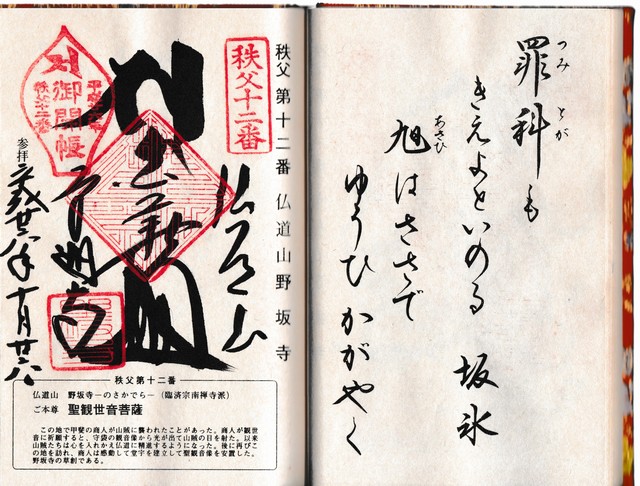 罪科も
つみ とが
きえよといのる 坂氷
旭はささで
あさひ
ゆうひ かがやく
秩父十二番
秩父第十二番 仏道山野坂寺
仏道山
御開帳
秩父十二番
参拝
十月廿八
秩父第十二番
仏道山 野坂寺―のさかでら―(臨済宗南禅寺派)
ご本尊 聖観世音菩薩
この地で甲斐の商人が山賊に襲われたことがあった。商人が観世
音に祈願すると、守袋の観音像から光が出て山賊の目を射た。以来
山賊たちは心を入れかえ仏道に精進するようになった。後に再びこ
の地を訪れ、商人は感動して堂宇を建立して聖観音像を安置した。
野坂寺の草創である。